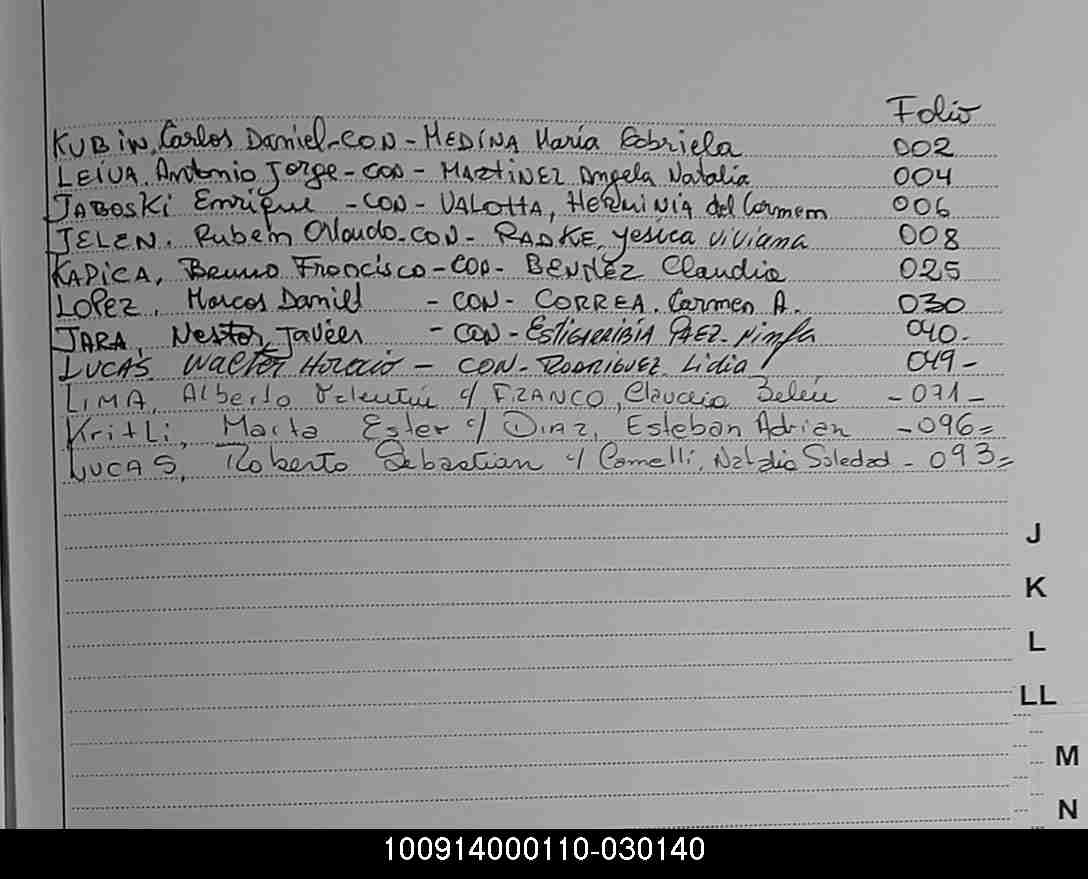 Folio
KUBIN, Carlos Daniel-CON-MEDINA María Gabriela 002
LEIVA, Antonio Jorge-CON-MARTINEZ Angela Natalia 004
JABOSKI Enrique -CON- VALOTTA, HERMINIA del Carmen 006
JELEN. Ruben Orlando-CON-RADKE, yesica viviana 008
KAPICA, Bruno Francisco-CON-BENITEZ Claudia 025
LOPEZ, Marcos Daniel -CON-CORREA. Carmen A. 030
JARA, Nestor Javier -CON-ESTIGARRIBIA PAEZ-Nimfa 040-
LUCAS Walter Horacio - CON-RODRIGUEZ Lidia 049-
LIMA, Alberto Valentín c/ FRANCO, Claudia Belén -071-
Kritli, Marta Ester c/ DIAZ, Esteban Adrian -096=
LUCAS, Roberto Sebastian c/ Comelli, Natalia Soledad - 093=
J
K
L
LL
M
N
100914000110-030140